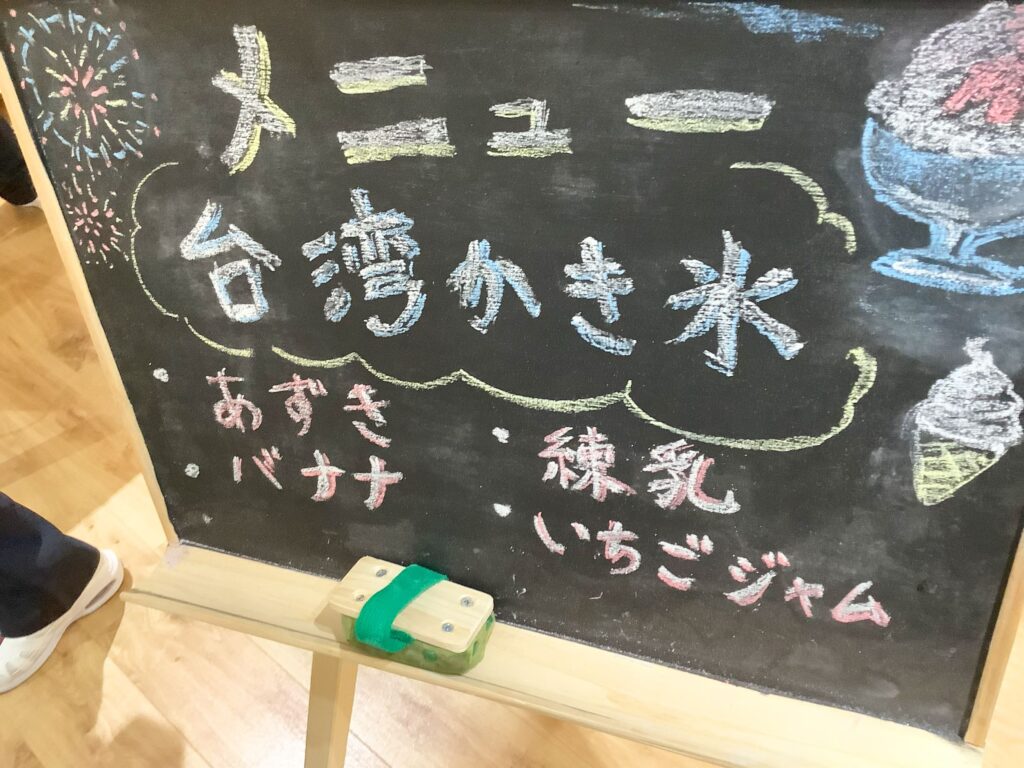 メニュー
台湾かき氷
・あずき
・バナナ
・練乳
・いちごジャム